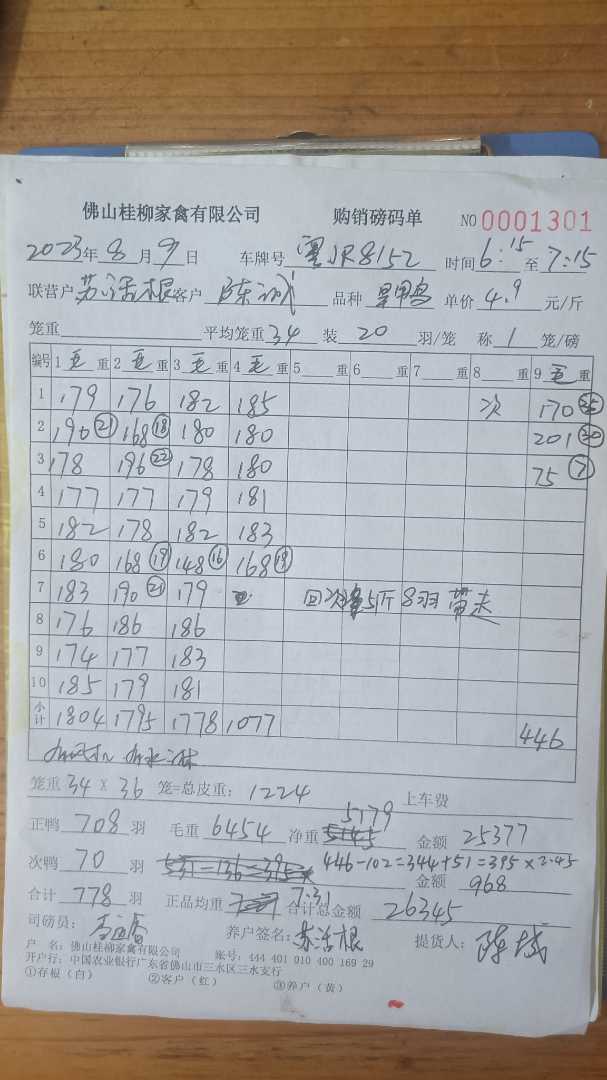 佛山桂柳家禽有限公司 购销磅码单 NO 0001301
2023年8月9日 车牌号 粤JR8152 时间 6:15 至 7:15
联营户 苏活根 客户 陈 品种 单价 4.9 元/斤
笼重 平均笼重 34 装 20 羽/笼 称 1 笼/磅
编号 1 毛 重 2 毛 重 3 毛 重 4 毛 重 5 重 6 重 7 重 8 重 9 毛 重
1 179 176 182 185 次 170 25
2 190 21 168 18 180 180 201 30
3 178 196 22 178 180 75 7
4 177 177 179 181
5 182 178 182 183
6 180 168 19 148 16 168 19
7 183 190 21 179 回次 5斤 8羽 带走
8 176 186 186
9 174 177 183
10 185 179 181
小计 1804 1795 1778 1077 446
笼重 34 × 36 笼=总皮重: 1224 上车费
5179
正鸭 708 羽 毛重 6454 净重 5145 金额 25377
次鸭 70 羽 446-102=344+51=395×2.45
金额 968
合计 778 羽 正品均重 7.31 合计总金额 26345
司磅员: 养户签名: 苏活根 提货人: 陈
户 名: 佛山桂柳家禽有限公司 账号: 444 401 010 400 169 29
开户行: 中国农业银行广东省佛山市三水区三水支行
①存根(白) ②客户(红) ③养户(黄)